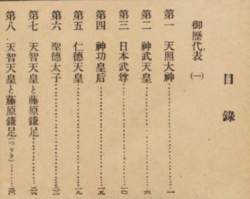 目錄
御歷代表(一)
第一 天照大神………一
第二 神武天皇………六
第三 日本武尊………
第四 神功皇后………
第五 仁德天皇………
第六 聖德太子………
第七 天智天皇と藤原鎌足………
第八 天智天皇と藤原鎌足(つゞき)………